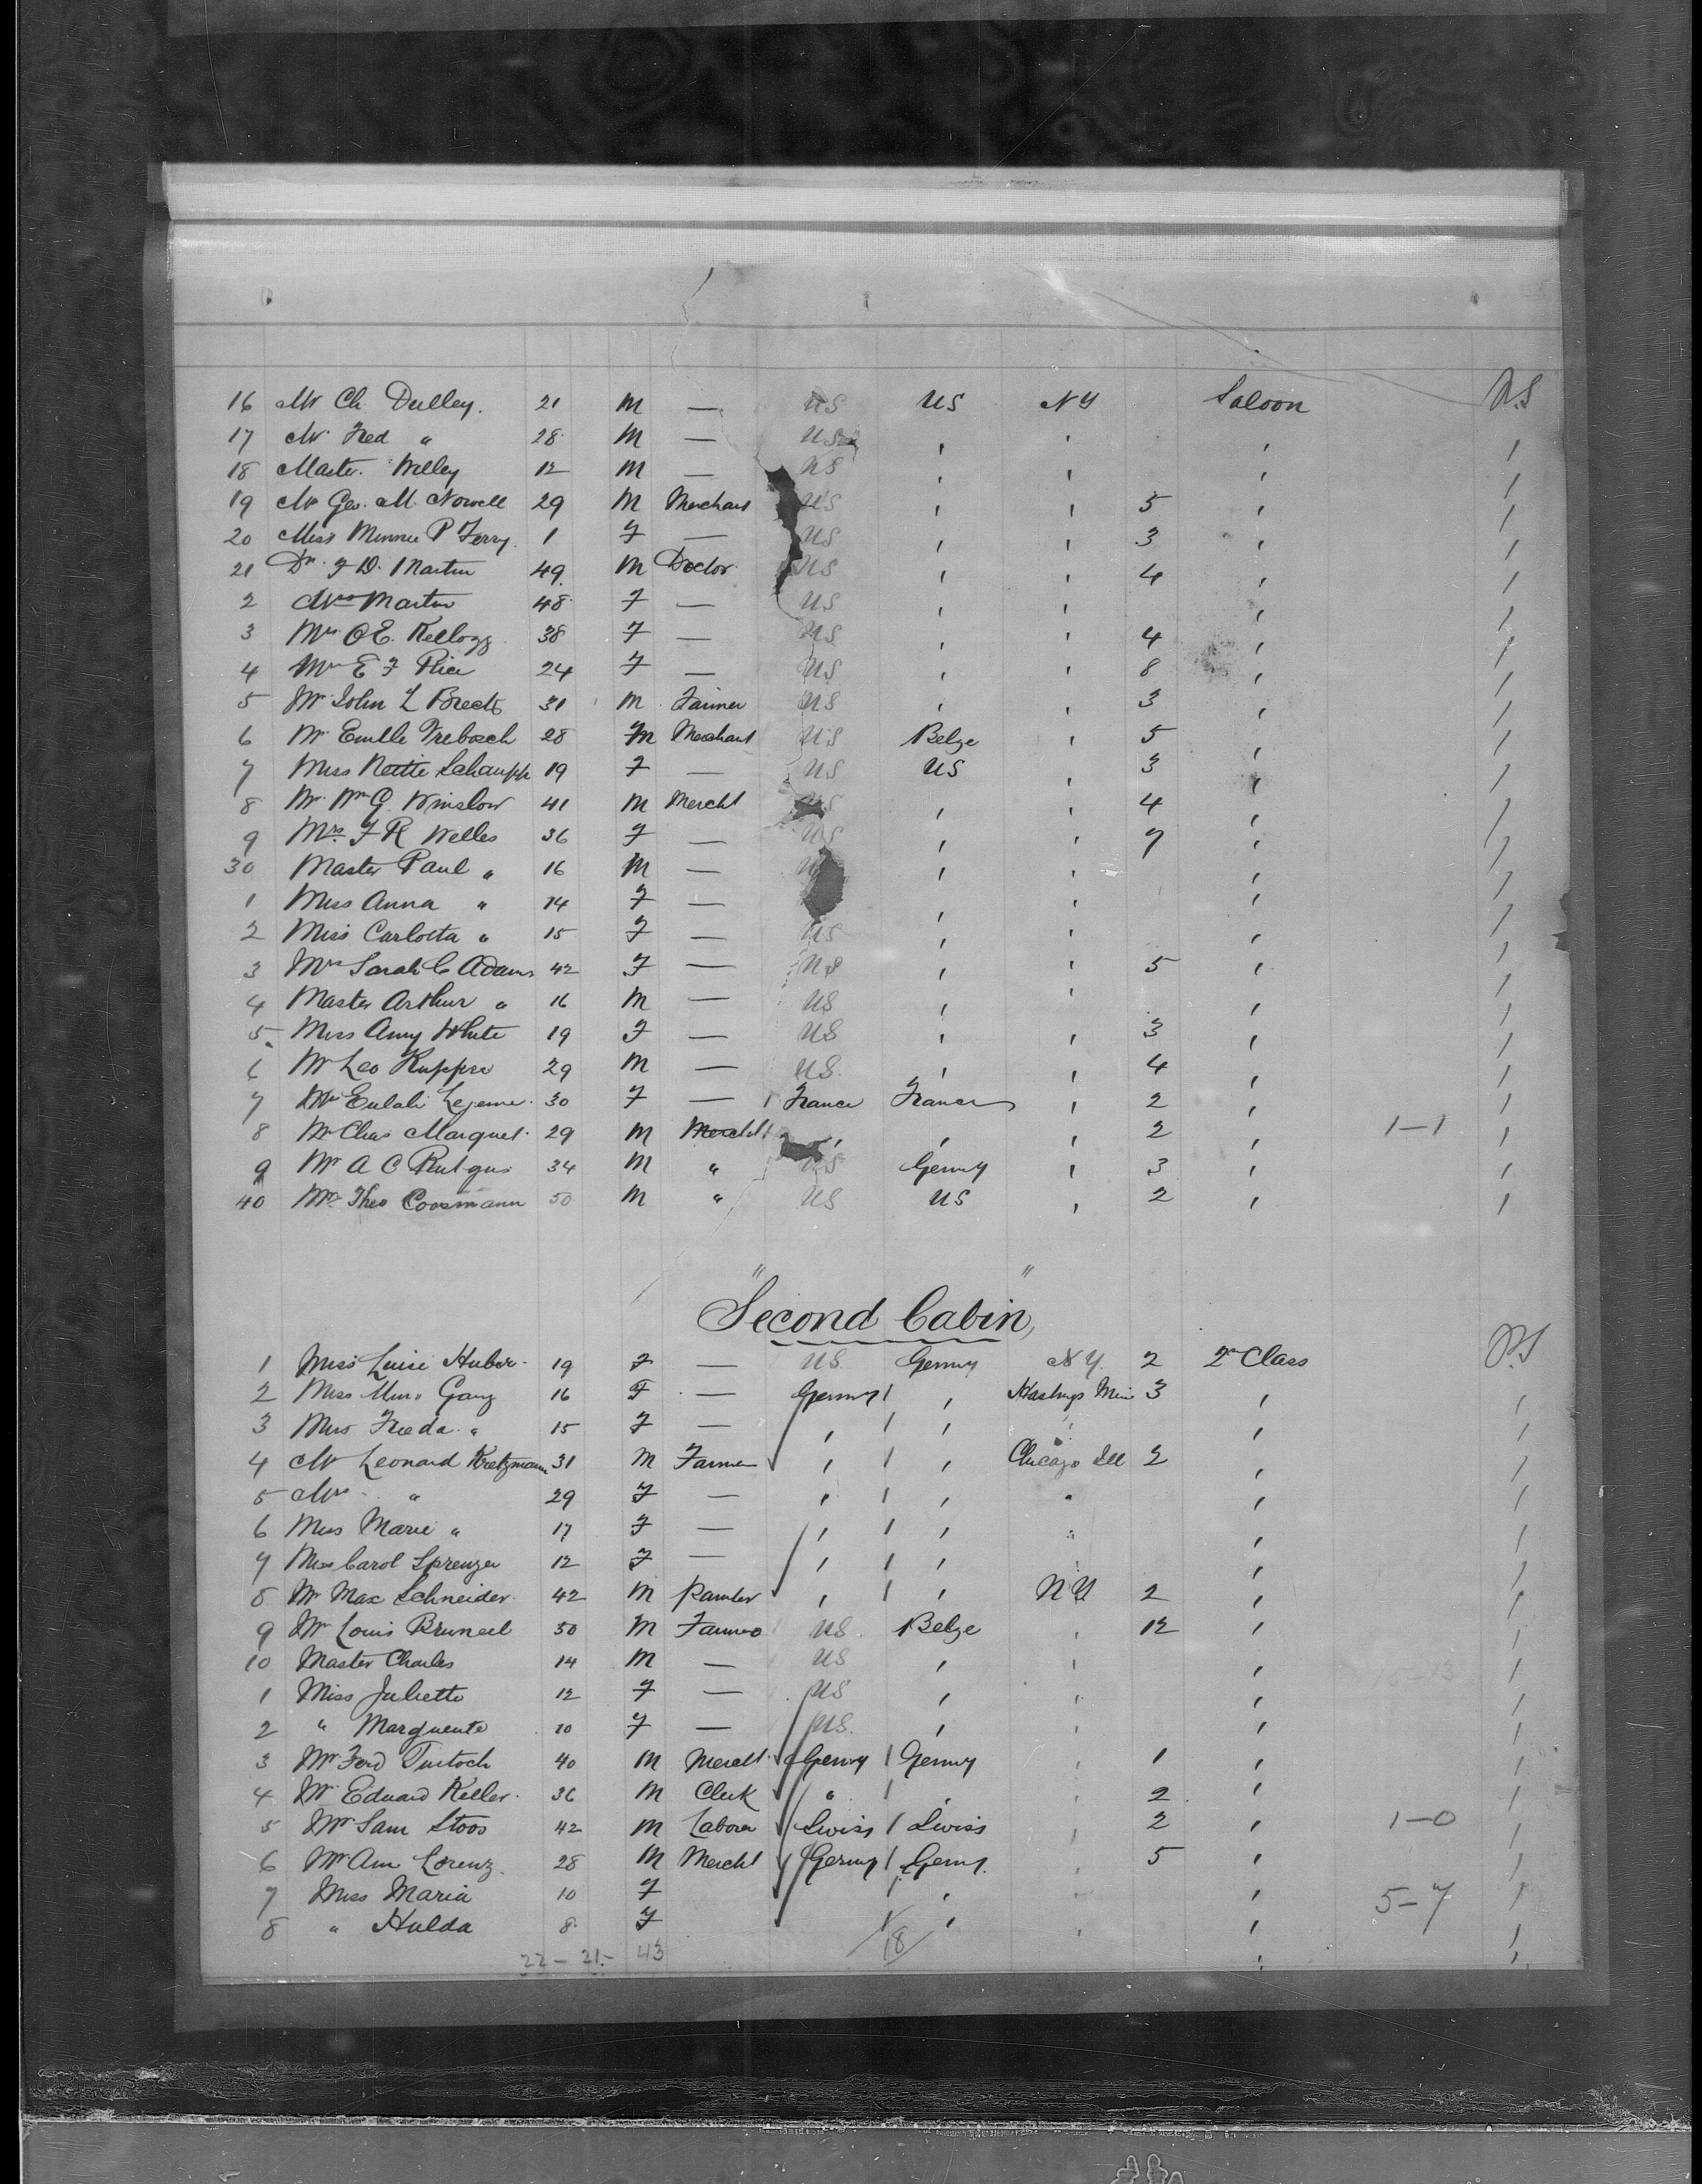 16 Mr Ch. Dulley. 21 M — US US NY Saloon U.S
17 Mr. Fred " 28 M — US , , , /
18 Master. Willey 12 M — US , , , /
19 Mr Geo. M. Nowell 29 M Merchant US , , 5 , /
20 Miss Minnie P Ferry. 1 F — US , , 3 , /
21 Dr. F D. Martin 49. M Doctor US , , 4 , /
2 Mrs Martin 48 F — US , , , /
3 Mrs O E. Kellogg 38 F — US , , 4 , /
4 Mrs E F Rice 24 F — US , , 8 , /
5 Mr John L 31 M Farmer US , , 3 , /
6 Mr. Emille Trebosch 28 M Merchant US Belge , 5 , /
7 Miss Nettie Schaupp 19 F — US US , 3 , /
8 Mr. Wm G. Winslow 41 M Mercht US , , 4 , /
9 Mrs. F R Welles 36 F — US , , 7 , /
30 Master Paul " 16 M — , , , /
1 Miss Anna " 14 F — , , , /
2 Miss Carlotta " 15 F — US , , , /
3 Mrs Sarah C Adams 42 F — US , , 5 , /
4 Master Arthur " 16 M — US , , , /
5 Miss Amy White 19 F — US , , 3 , /
6 Mr Leo 29 M — US. , , 4 , /
7 Eulali Lejeune 30 F — France France , 2 , /
8 Mr Chas Marquet. 29 M Mercht , , , 2 , 1-1 /
9 Mr A C 34 M " US Germy , 3 , /
40 Mr. Theo Coosmann 50 M " US US , 2 , /
"Second Cabin"
1 Miss Luise Huber. 19 F — US. Germy N Y. 2 2n Class U.S
2 Miss Gang 16 F — Germy / , Hastings Min 3 , /
3 Miss Freda " 15 F — , / , , /
4 Mr Leonard Kretzmann 31 M Farmer , / , Chicago Ill 2 , /
5 Mrs " 29 F — , / , " , /
6 Miss Marie " 17 F — , / , " , /
7 Miss Carol Sprenger 12 F — , / , , /
8 Mr Max Schneider. 42 M , / , N Y 2 , /
9 Mr Louis Bruneel 50 M Farmer US. Belge , 12 , /
10 Master Charles 14 M — US , , , /
1 Miss Juliette 12 F — US , , , /
2 " Marguerite 10 F — US. , , , /
3 Mr Ferd 40 M Mercht. Germy / Germy , 1 , /
4 Mr Eduard Keller. 36 M Clerk " / , , 2 , /
5 Mr Sam Stoos 42 M Laborer Swiss / Swiss , 2 , 1-0 /
6 Mr Lorenz. 28 M Mercht Germy / Germy. , 5 , /
7 Miss Maria 10 F / , , , 5-7 /
8 " Hulda 8 F / , , , /
22 - 21. - 43 18